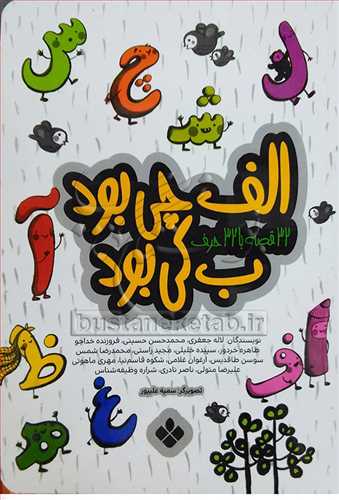 ل
چ
س
ش
آ
الف چی بود
۳۲ قصه با ۳۲ حرف
ب کی بود
bustaneketab.ir
نویسندگان: لاله جعفری، محمدحسن حسینی، فروزنده خداجو
طاهره خردور، سپیده خلیلی، مجید راستی، محمدرضا شمس
سوسن طاقدیس، ارغوان غلامی، شکوه قاسم‌نیا، مهری ماهوتی
علیرضا متولی، ناصر نادری، شراره وظیفه‌شناس
تصویرگر: سمیه علیپور
ظ
ف
ا
غ